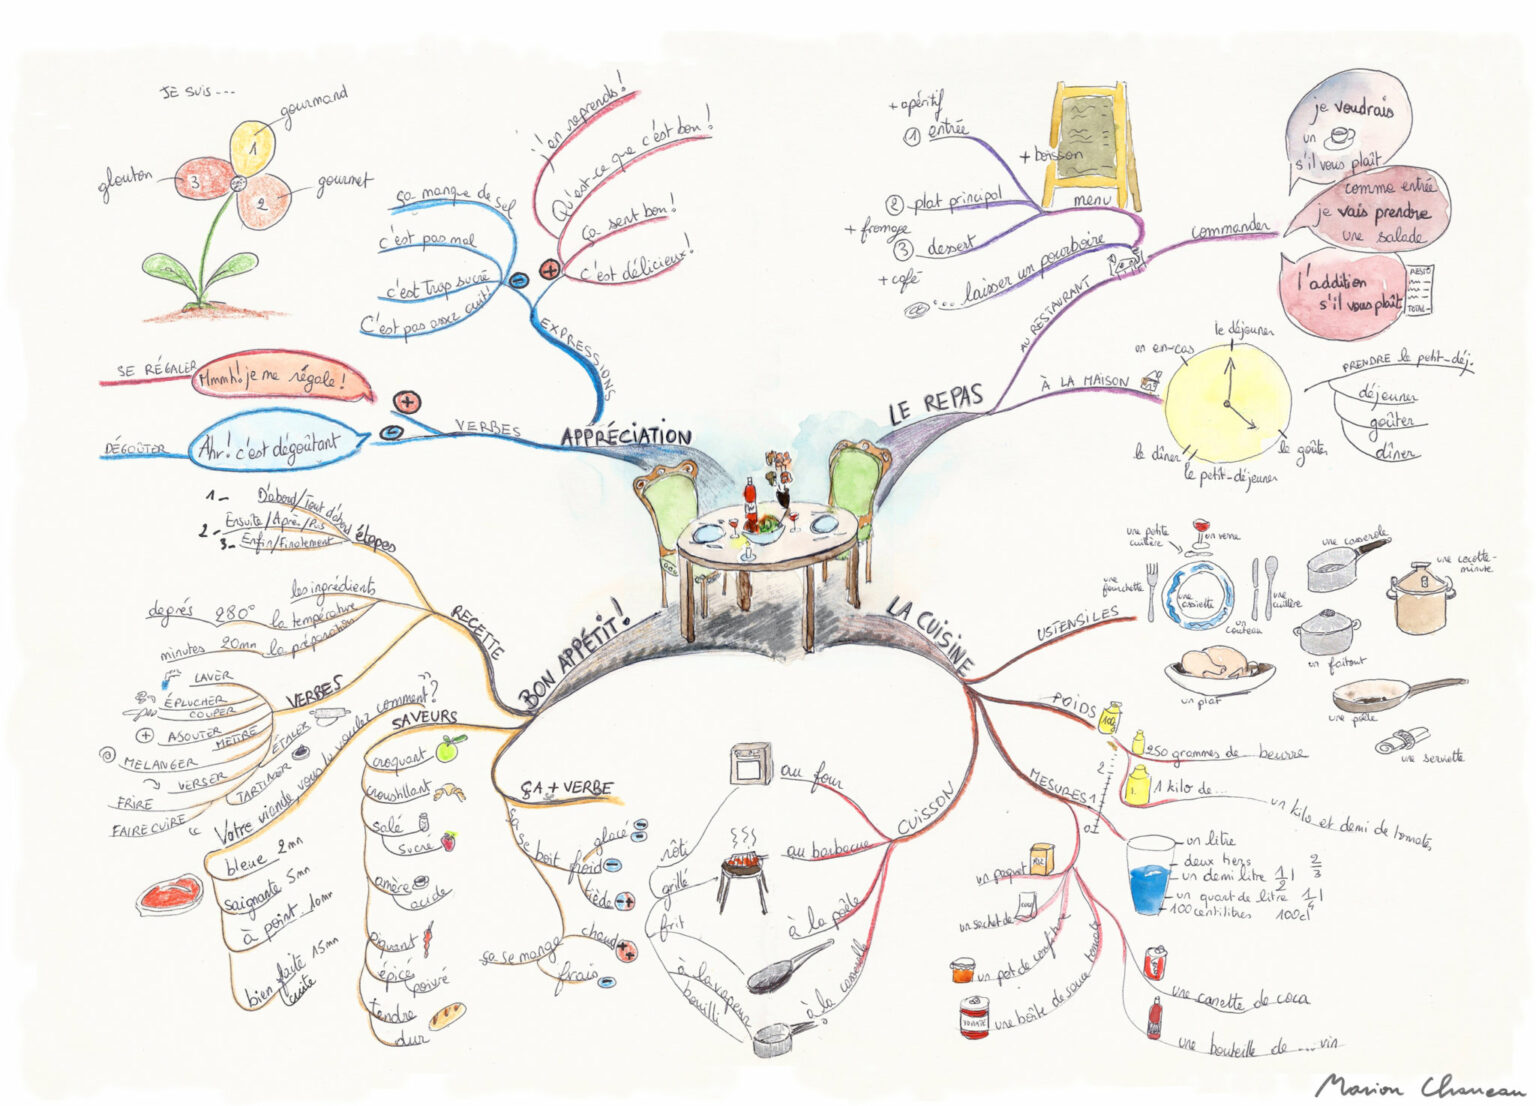 JE SUIS...
gourmand
glouton
1
3
2
gourmet
SE RÉGALER
Mmmh! je me régale!
DÉGOÛTER
Ahr! c'est dégoûtant
VERBES
APPRÉCIATION
EXPRESSIONS
ça manque de sel
c'est pas mal
c'est trop sucré
c'est pas assez cuit!
j'en reprends!
Qu'est-ce que c'est bon!
ça sent bon!
c'est délicieux!
LE REPAS
AU RESTAURANT
menu
+ apéritif
1 entrée
+ boisson
2 plat principal
+ fromage
3 dessert
+ café
... laisser un pourboire
commander
je voudrais
un
s'il vous plaît
comme entrée
je vais prendre
une salade
l'addition
s'il vous plaît
RESTO
TOTAL
À LA MAISON
le déjeuner
en en-cas
le goûter
le dîner
le petit-déjeuner
PRENDRE le petit-déj.
déjeuner
goûter
dîner
BON APPÉTIT!
RECETTE
étapes
1 - D'abord/Tout d'abord
2 - Ensuite/Après/Puis
3 - Enfin/Finalement
les ingrédients
degrés 280° la température
minutes 20mn la préparation
VERBES
LAVER
ÉPLUCHER
COUPER
AJOUTER
METTRE
MELANGER
VERSER
FRIRE
FAIRE CUIRE
ÉTALER
TARTINER
"Votre viande, vous la voulez comment"?
bleue 2mn
saignante 5mn
à point 10mn
bien faite 15mn
cuite
SAVEURS
croquant
croustillant
salé
sucré
amère
acide
piquant
épicé
poivré
tendre
dur
ÇA + VERBE
ça se boit
glacé
froid
tiède
ça se mange
chaud
frais
LA CUISINE
CUISSON
au four
au barbecue
à la poêle
à la casserole
rôti
grillé
frit
à la vapeur
bouilli
USTENSILES
une petite
cuillère
un verre
une
fourchette
une
assiette
un
couteau
une
cuillère
une casserole
une cocotte-
minute
un faitout
un plat
une poêle
une serviette
POIDS
250 grammes de... beurre
1 kilo de...
un kilo et demi de tomates
MESURES
2
1
0
un litre
deux tiers 2/3
un demi litre 1/2 l
un quart de litre 1/4 l
100 centilitres 100cl
un paquet
un sachet de
un pot de confiture
une boîte de sauce tomate
une canette de coca
une bouteille de ... vin
Marion Charreau